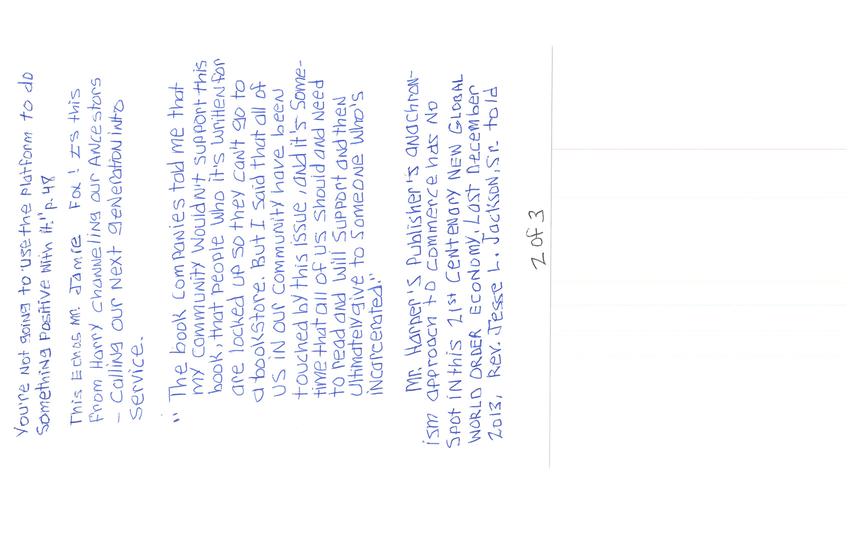 You're Not going to use the Platform to do
something Positive With it." p.48
This Echos Mr. Jamie Fox! Is this
From Harry channeling our Ancestors
- Calling our Next generation into
Service.
"The book companies told me that
my community Wouldn't support this
book, that people who it's written for
are locked up so they can't go to
a bookstore. But I said that all of
us in our community have been
touched by this issue, and it's some-
time that all of us should and need
to read and will support and then
ultimately give to someone who's
incarcerated."
Mr. Harper's Publisher's anachron-
ism approach to commerce has No
spot in this 21st Centenary New Global
World Order Economy. Last December
2013, Rev. Jesse L. Jackson, Sr. told
2 of 3